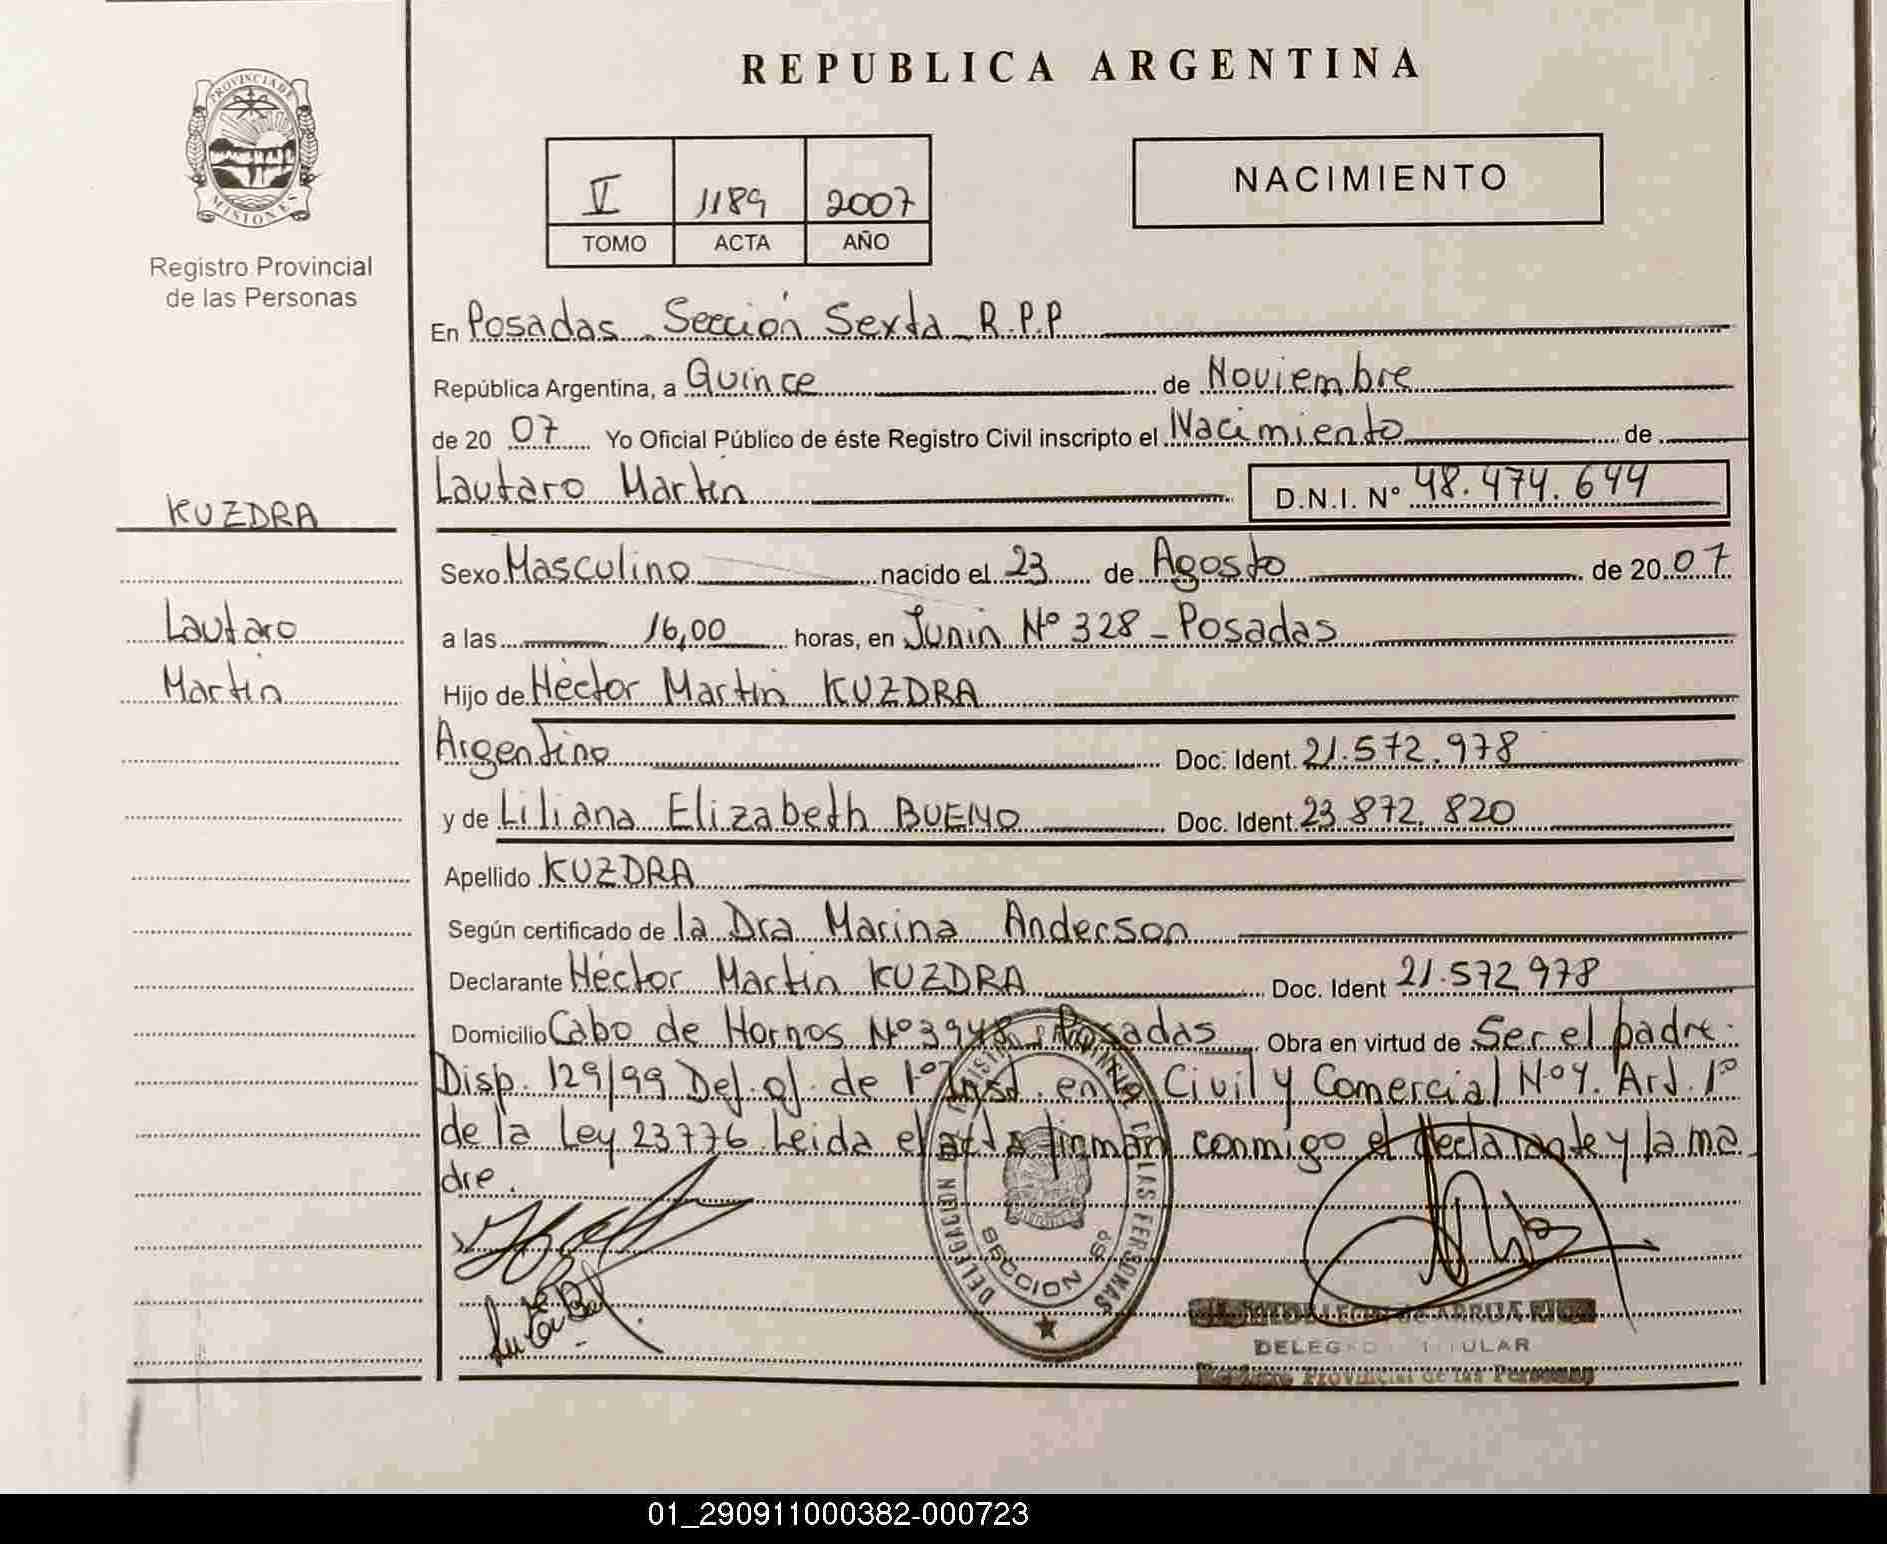 REPUBLICA ARGENTINA
PROVINCIA DE MISIONES
Registro Provincial
de las Personas
V 1189 2007
TOMO ACTA AÑO
NACIMIENTO
En Posadas - Sección Sexta - R.P.P
República Argentina, a Quince de Noviembre
de 20 07 Yo Oficial Público de éste Registro Civil inscripto el Nacimiento de
Lautaro Martin D.N.I. N° 48.474.644
KUZDRA
Sexo Masculino nacido el 23 de Agosto de 20 07
Lautaro
a las 16,00 horas, en Junin Nº 328 - Posadas
Martin
Hijo de Héctor Martin KUZDRA
Argentino Doc. Ident. 21.572.978
y de Liliana Elizabeth BUENO Doc. Ident. 23.872.820
Apellido KUZDRA
Según certificado de la Dra Marina Anderson
Declarante Héctor Martin KUZDRA Doc. Ident 21.572.978
Domicilio Cabo de Hornos Nº 3948 - Posadas Obra en virtud de Ser el padre.
Disp. 129/99 Def. of. de 1º Inst. en lo Civil y Comercial Nº 4. Art. 1º
de la Ley 23776. Leida el acta firman conmigo el declarante y la ma
dre.
DELEGACION REGISTRO PROVINCIAL DE LAS PERSONAS
SECCION 6º
DELEGADO TITULAR
Registro Provincial de las Personas
01_290911000382-000723